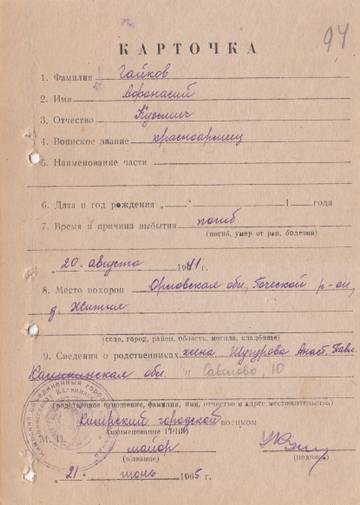 94
КАРТОЧКА
1. Фамилия Гайков
2. Имя Афонасий
3. Отчество Кузьмич
4. Воинское звание красноармеец
5. Наименование части
6. Дата и год рождения „ “ 1 года
7. Время и причина выбытия погиб
(погиб, умер от ран, болезни)
„20“ августа 1941 г.
8. Место похорон Орловская обл.
д. Житня
(село, город, район, область, могила, кладбище)
9. Сведения о родственниках жена
Калининская обл. п Савелово, 10
(родственное отношение, фамилия, имя, отчество и адрес местожительства)
Кимрский городской военком
(наименование ГРВК)
М. П. майор
(звание) (подпись)
„21“ июнь